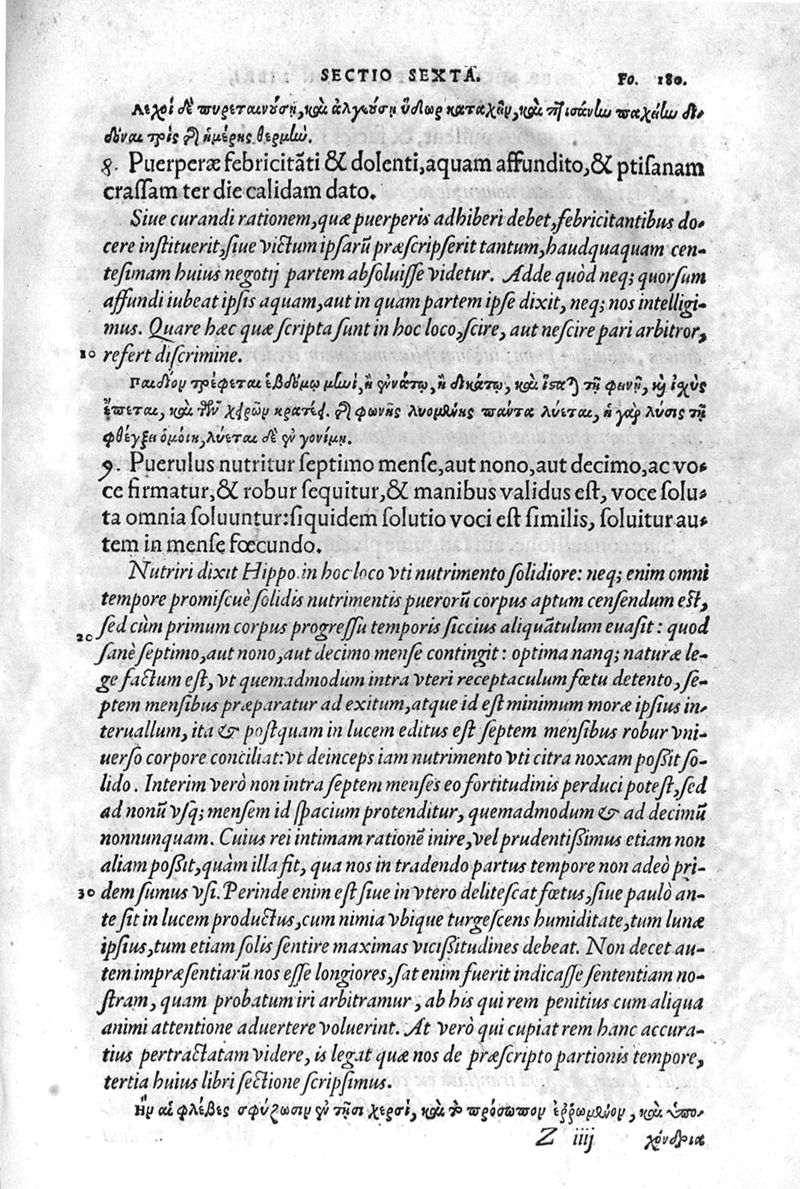 SECTIO SEXTA. FO. 180.
Λεχοῖ δὲ πυρεταινούσῃ, καὶ ἀλγεούσῃ ὕδωρ καταχέειν, καὶ πτισάνην παχείην δι-
δόναι τρὶς τῆς ἡμέρης θερμήν.
8. Puerperæ febricitãti & dolenti, aquam affundito, & ptisanam
crassam ter die calidam dato.
Siue curandi rationem, quæ puerperis adhiberi debet, febricitantibus do-
cere instituerit, siue victum ipsarũ præscripserit tantum, haudquaquam cen-
tesimam huius negotij partem absoluisse videtur. Adde quòd neq; quorsum
affundi iubeat ipsis aquam, aut in quam partem ipse dixit, neq; nos intelligi-
mus. Quare hæc quæ scripta sunt in hoc loco, scire, aut nescire pari arbitror,
10 refert discrimine.
Παιδίον τρέφεται ἑβδόμῳ μηνὶ, ἢ ἐννάτῳ, ἢ δεκάτῳ, καὶ ἵσταται τῇ φωνῇ, καὶ ἰχὺς
ἕπεται, καὶ τῶν χειρῶν κρατέει. τῆς φωνῆς λυομένης πάντα λύεται, ἡ γὰρ λύσις τῇ
φθέγξει ὁμοίη, λύεται δὲ ἐν γονίμῃ.
9. Puerulus nutritur septimo mense, aut nono, aut decimo, ac vo-
ce firmatur, & robur sequitur, & manibus validus est, voce solu-
ta omnia soluuntur: siquidem solutio voci est similis, soluitur au-
tem in mense fœcundo.
Nutriri dixit Hippo. in hoc loco vti nutrimento solidiore: neq; enim omni
tempore promiscuè solidis nutrimentis puerorũ corpus aptum censendum est,
20 sed cùm primum corpus progressu temporis siccius aliquãtulum euasit: quod
sanè septimo, aut nono, aut decimo mense contingit: optima nanq; naturæ le-
ge factum est, vt quemadmodum intra vteri receptaculum fœtu detento, se-
ptem mensibus præparatur ad exitum, atque id est minimum moræ ipsius in-
teruallum, ita & postquam in lucem editus est septem mensibus robur vni-
uerso corpore conciliat: vt deinceps iam nutrimento vti citra noxam possit so-
lido. Interim verò non intra septem menses eo fortitudinis perduci potest, sed
ad nonũ vsq; mensem id spacium protenditur, quemadmodum & ad decimũ
nonnunquam. Cuius rei intimam rationẽ inire, vel prudentissimus etiam non
aliam possit, quàm illa fit, qua nos in tradendo partus tempore non adeò pri-
30 dem sumus vsi. Perinde enim est siue in vtero delitescat fœtus, siue paulò an-
te sit in lucem productus, cum nimia vbique turgescens humiditate, tum lunæ
ipsius, tum etiam solis sentire maximas vicissitudines debeat. Non decet au-
tem impræsentiarũ nos esse longiores, sat enim fuerit indicasse sententiam no-
stram, quam probatum iri arbitramur, ab his qui rem penitius cum aliqua
animi attentione aduertere voluerint. At verò qui cupiat rem hanc accura-
tius pertractatam videre, is legat quæ nos de præscripto partionis tempore,
tertia huius libri sectione scripsimus.
Ἢν αἱ φλέβες σφύζωσιν ἐν τῇσι χερσὶ, καὶ τὸ πρόσωπον ἐῤῥωμένον, καὶ ὑπο-
Z iiij χόνδρια